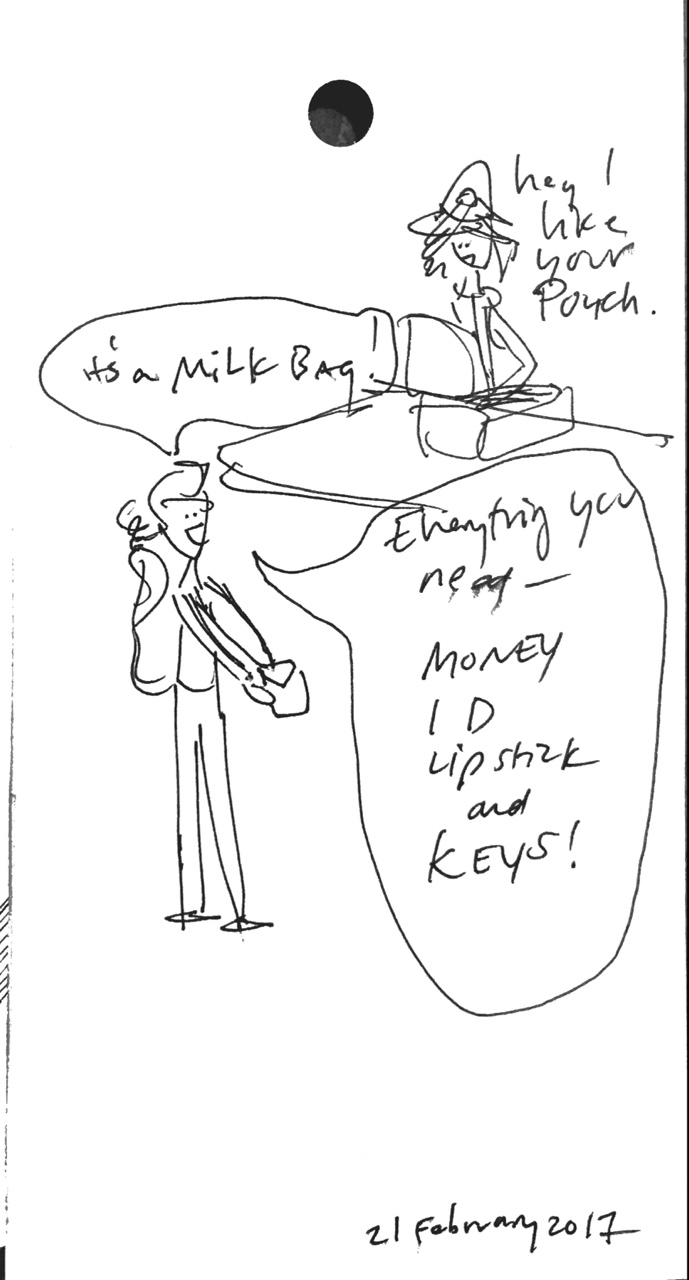 hey I
like
your
Pouch.
it's a MiLK BAg!
Everything you
need —
MONEY
I D
Lipstick
and
KEYS!
21 February 2017